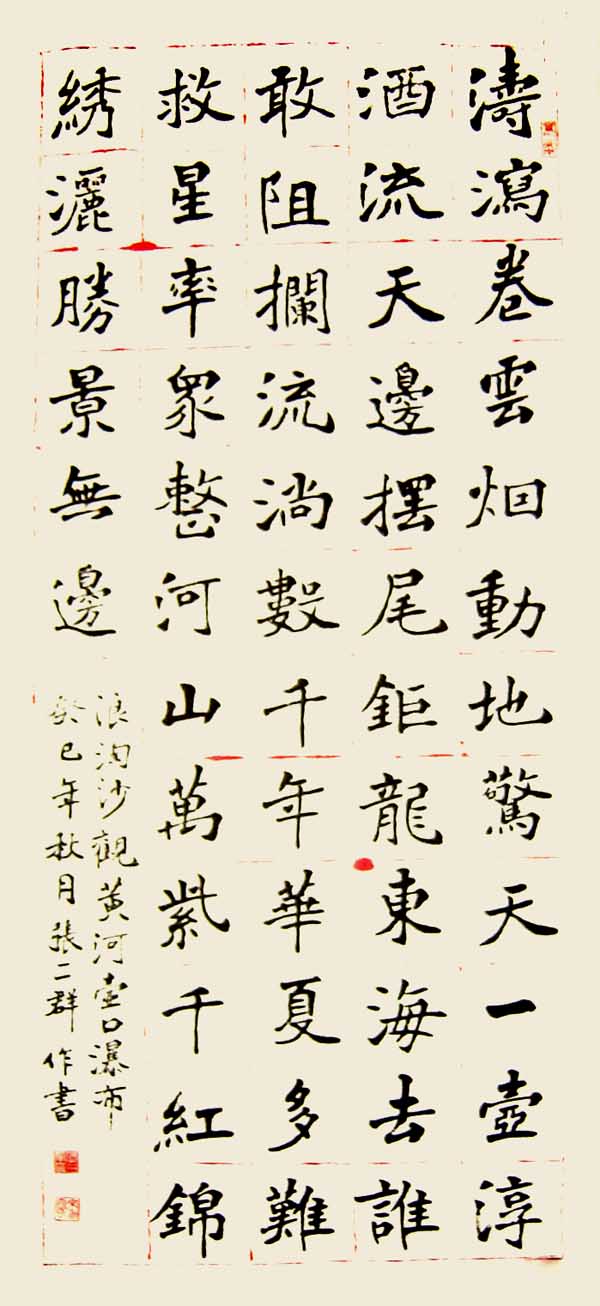 濤瀉卷雲烟動地驚天一壺淳
酒流天邊擺尾鉅龍東海去誰
敢阻攔流淌數千年華夏多難
救星率眾整河山萬紫千紅錦
綉灑勝景無邊
浪淘沙觀黃河壺口瀑布
癸巳年秋月張二群作書